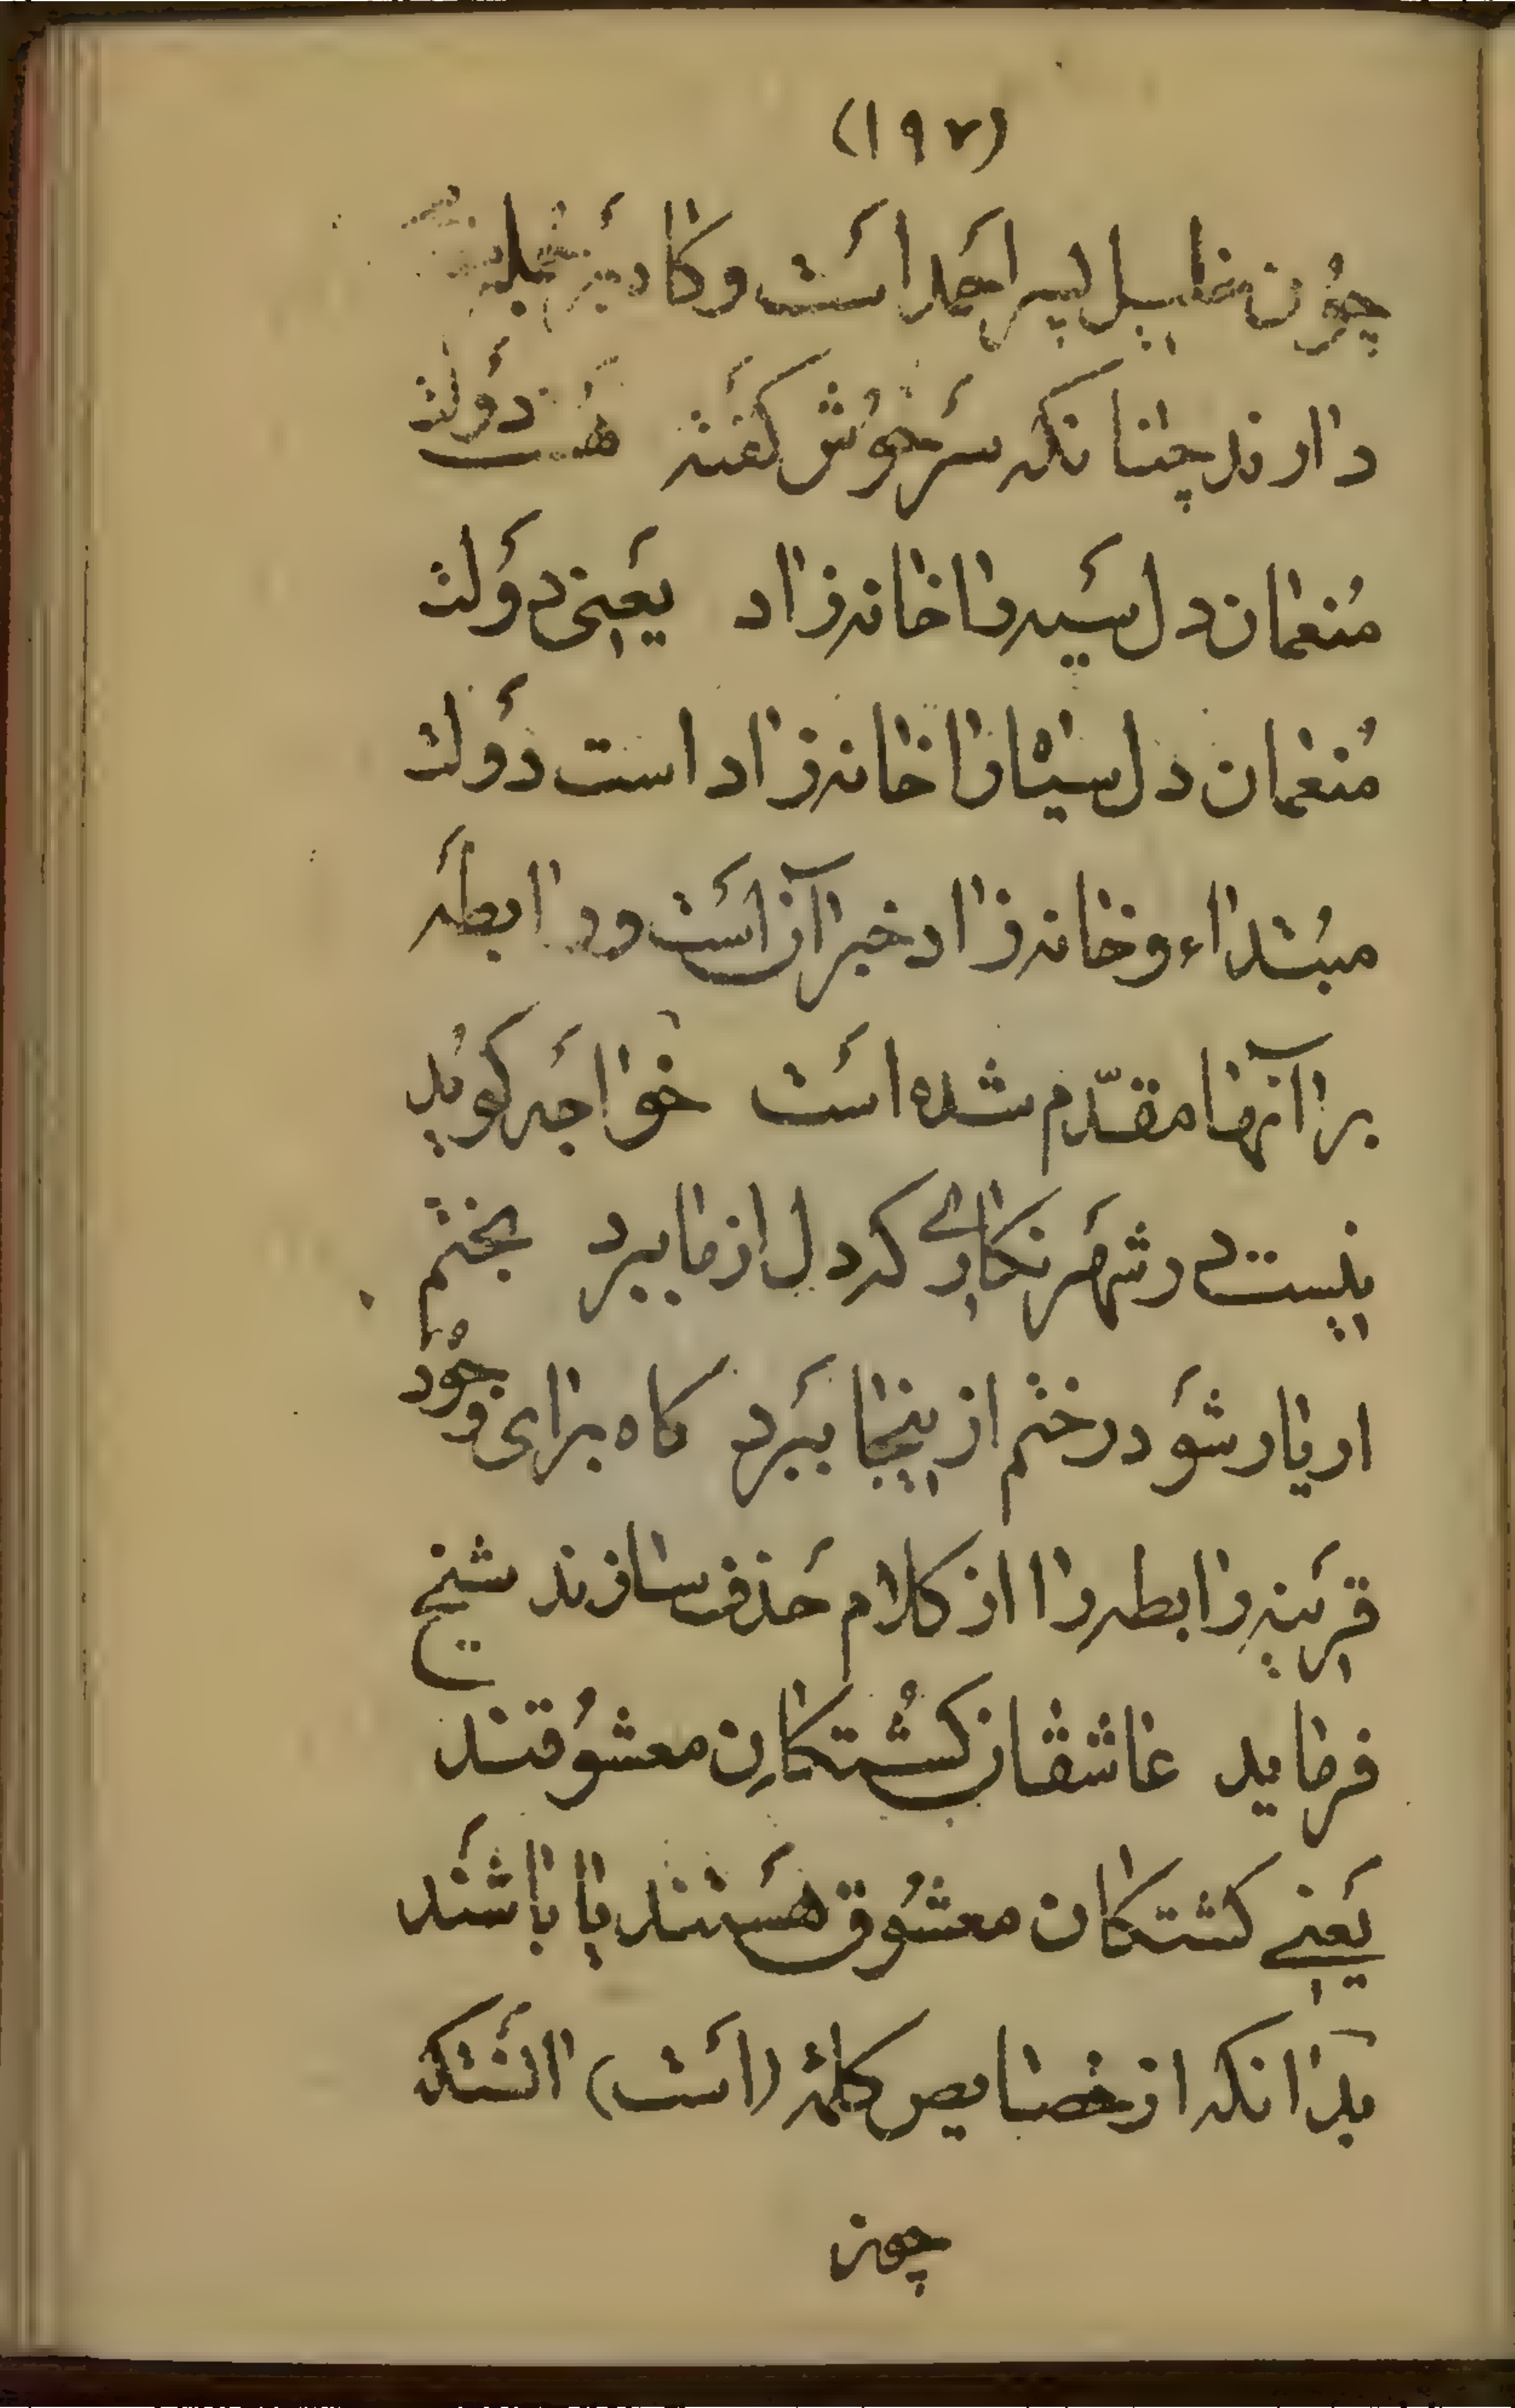 (۱۹۲)
چوُن خلیل پسر احَمد اسَت و کاه
دارند چنانکه سَرخوُش کفَته هست دَولت
مُنعمان دل سیَه را خانه زاد یَعنی دَولت
مُنعمان دل سیاه را خانه زاد است دَولت
مبُتداء و خانه زاد خبر آن اسَت و رابطَه
بر آنها مقدّم شده اسَت خواجَه کویُد
نیست در شهَر نکاری که دل از ما ببرد بختم
ار یار شوَد رختم از اینجا ببَرد کاه برای وجوُد
قرَینه رابطه را از کلام حَذف سازند شیخ
فرماید عاشقان کُشتکانِ معشوُقند
یَعنی کشتکان معشوُق هسَتند یا باشَند
بدانکه از خصایص کلمهٔ (اسَت) انسَتکه
چون